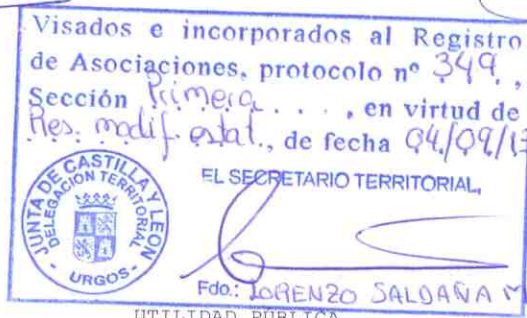 Visados e incorporados al Registro
de Asociaciones, protocolo nº 349,
Sección Primera . . . , en virtud de
Res. modif. estat., de fecha 04/09/17
JUNTA DE CASTILLA Y LEÓN
DELEGACIÓN TERRITORIAL
URGOS
EL SECRETARIO TERRITORIAL,
Fdo.: LORENZO SALDAÑA M
UTILIDAD PUBLICA